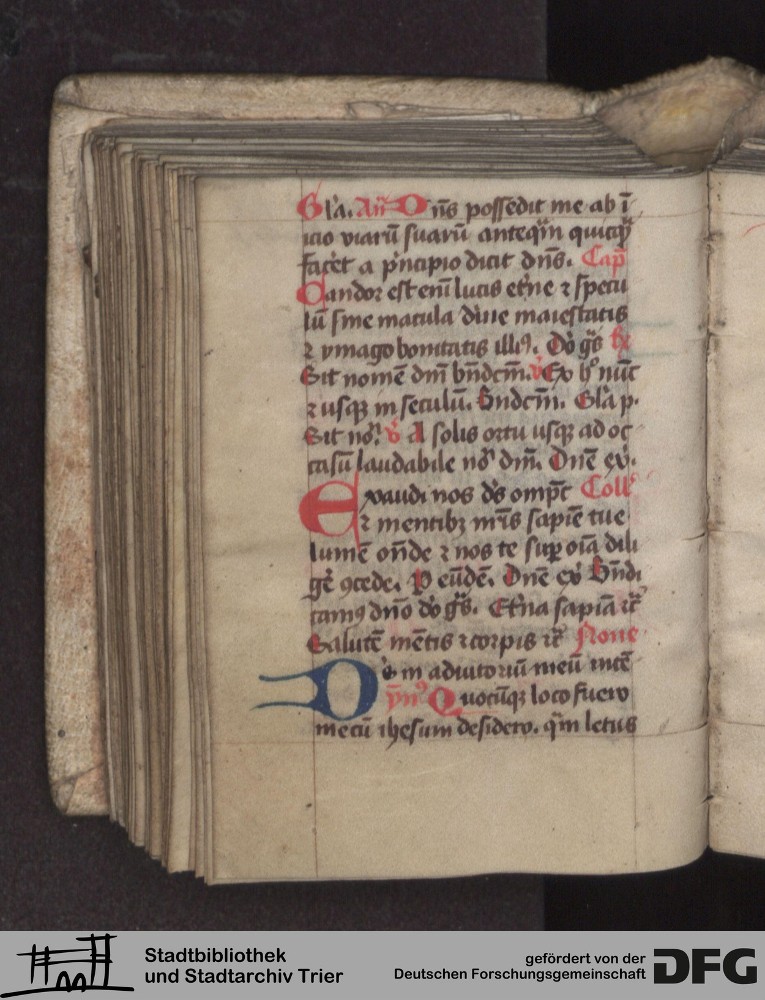 Gl'a. Añ Dñs possedit me ab ī
icio viarū suarū anteqȝm quicqȝ
fac̄et a p'ncipio dicit dñs. Cap̄
Candor est enī lucis et'ne ⁊ specu
lū sine macula diuīe maiestatis
⁊ ymago bonitatis illiꝰ. Dō gs̄
Sit nomē dm̄ bn̄dcm̄. v̄ Ex hͦ nūc
⁊ usqȝ in seculū. Bn̄dcm̄. Gl'a p.
Sit no. v̄ A solis ortu usqȝ ad oc
casū laudabile no dm̄. Dn̄e ex.
Exaudi nos ds̄ omp̄t Coll'
⁊ mentibȝ nr̄is sapiē tue
lumē on̄de ⁊ nos te sup oīa dili
gē ꝯcede. P eūdē. Dn̄e ex Bn̄di
camꝰ dn̄o dō gs̄. Et'na sapīa ⁊c̄
Salutē mētis ⁊ corpis ⁊c̄ None
Ds̄ in adiutoriū meū intē
ymꝰ Quocūqȝ loco fuero
mecū ihesum desidero. qm̄ letus
Stadtbibliothek
und Stadtarchiv Trier
gefördert von der
Deutschen Forschungsgemeinschaft
DFG